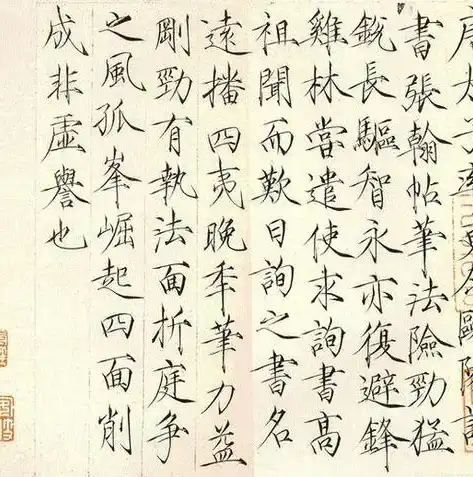 太子
書張翰帖筆法險勁猛
鋭長驅智永亦復避鋒
雞林嘗遣使求詢書高
祖聞而歎曰詢之書名
遠播四夷晚秊筆力益
剛勁有執法面折庭争
之風孤峯崛起四面削
成非虛譽也